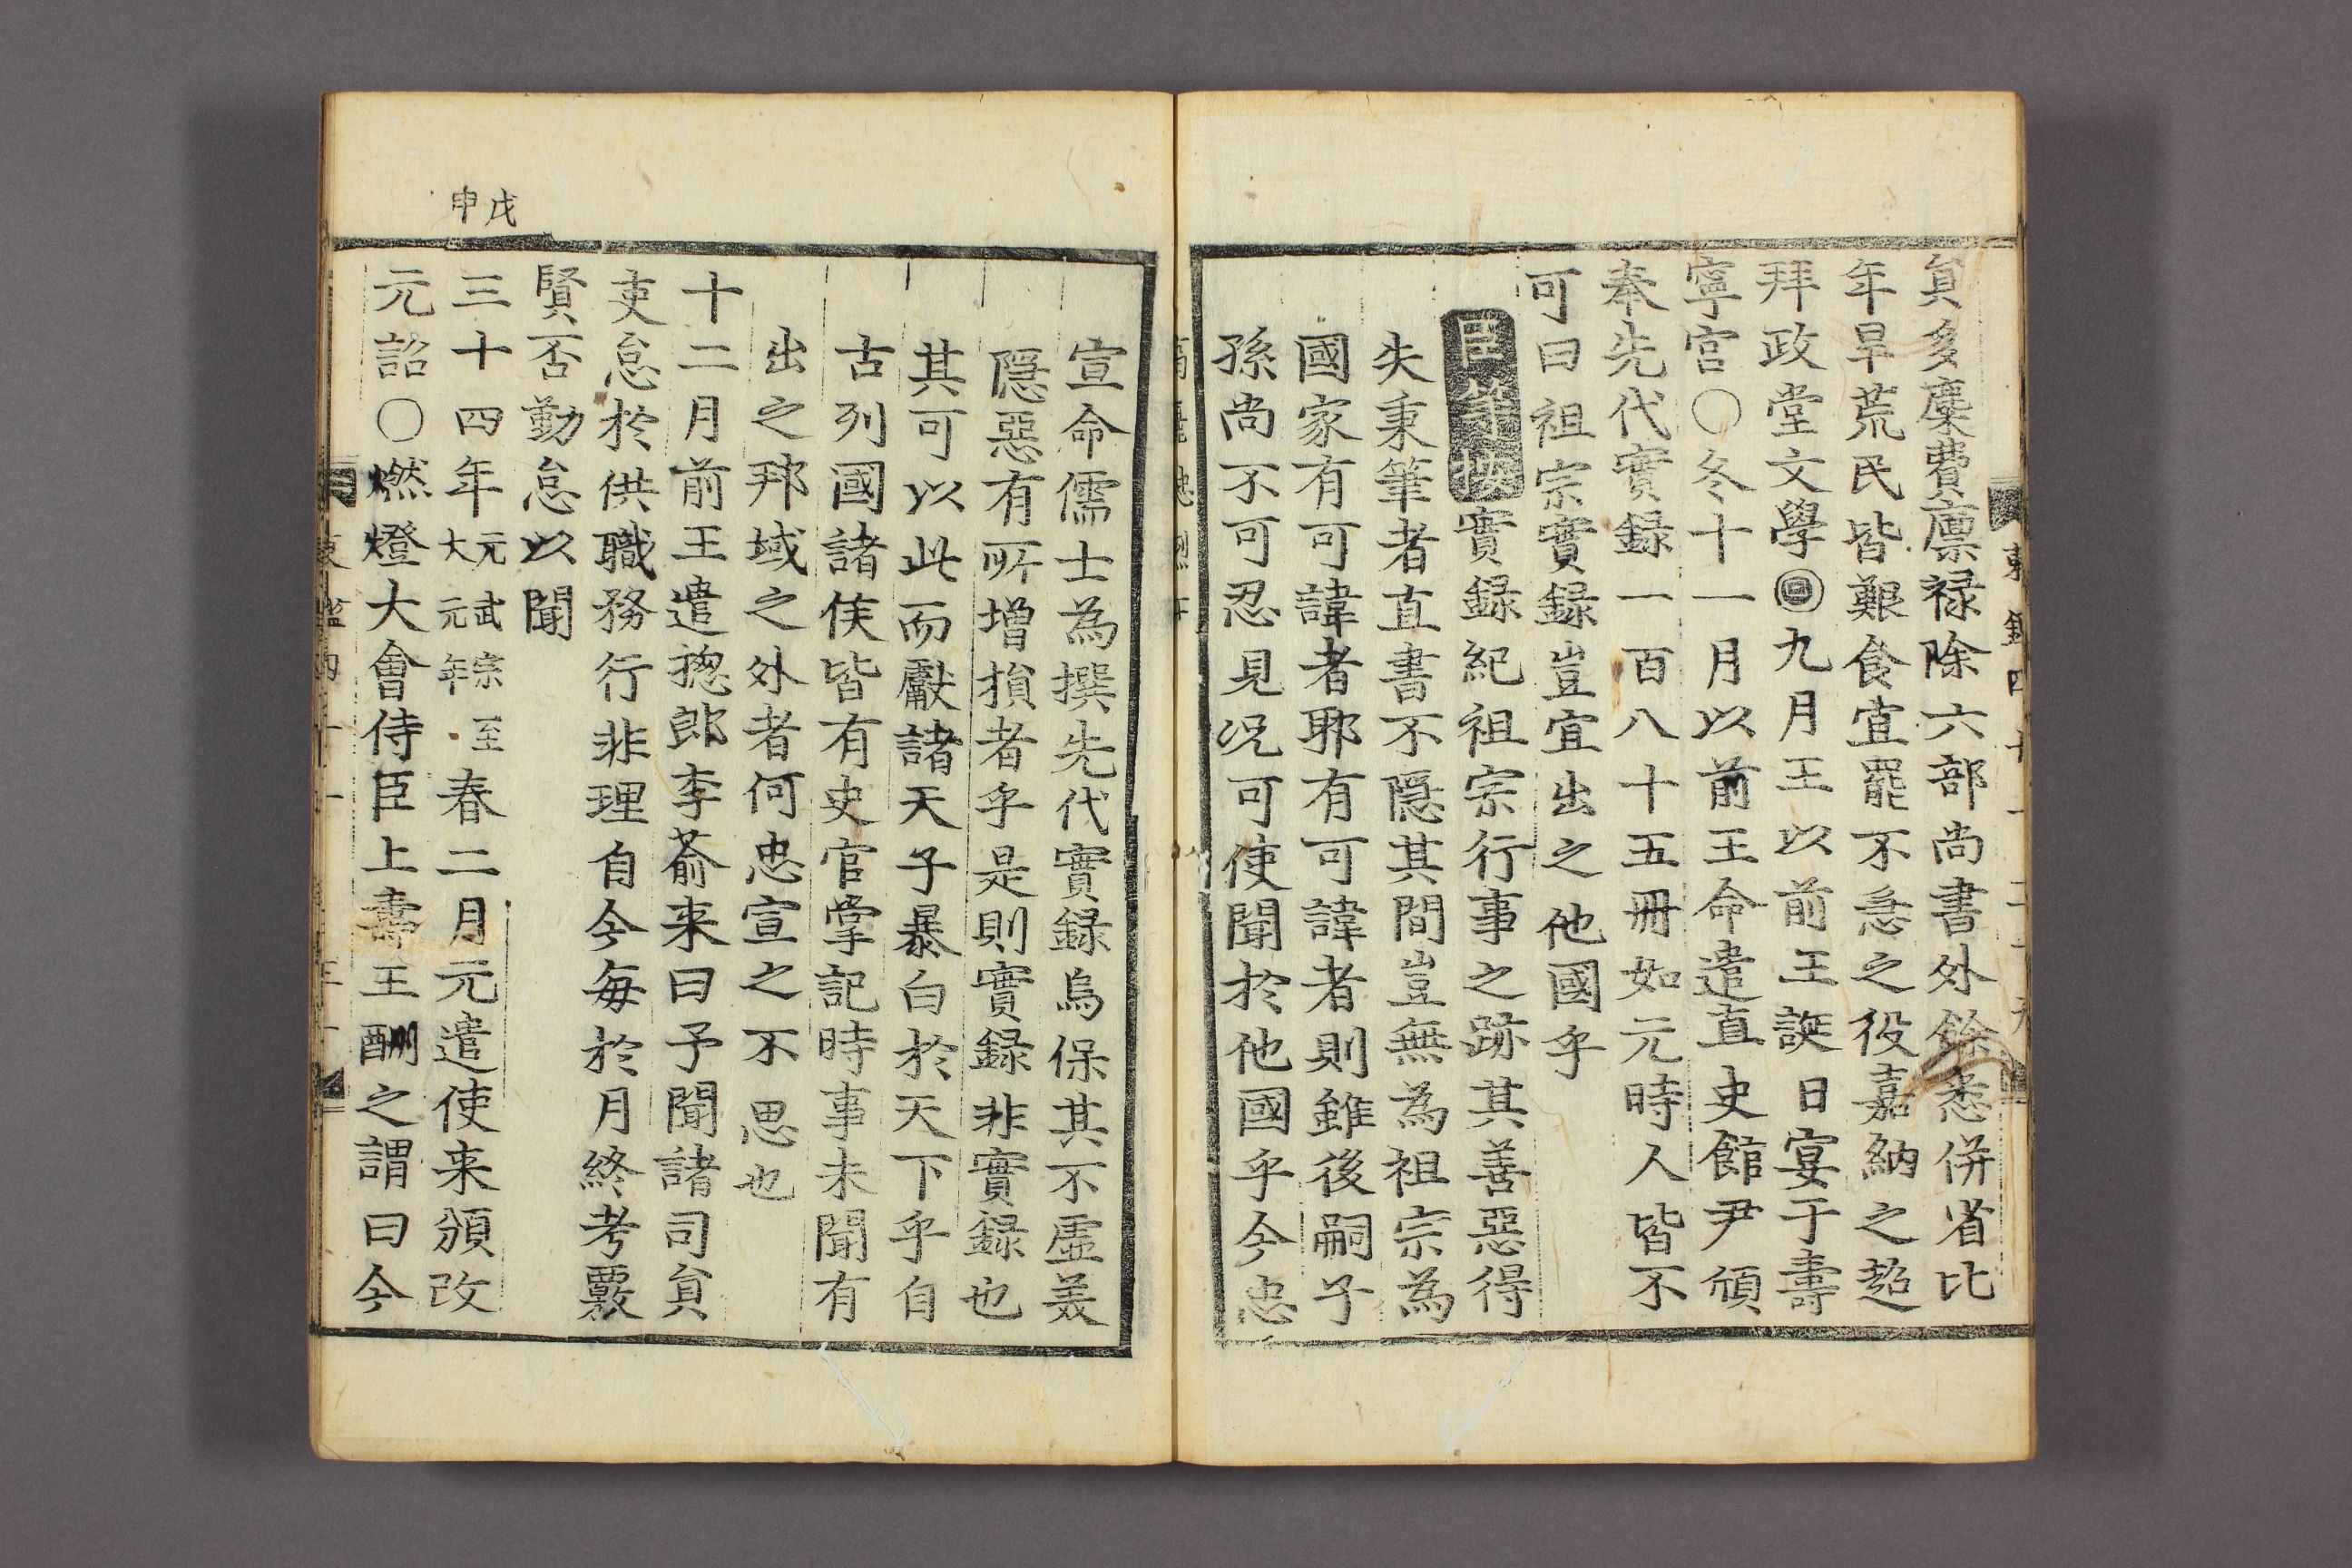 負多糜費廪禄除六部尚書外餘悉併省比
年旱荒民皆艱食宜罷不急之役嘉納之超
拜政堂文學○九月王以前王誕日宴于壽
寧宮○冬十一月以前王命遣直史館尹頎
奉先代實録一百八十五冊如元時人皆不
可曰祖宗實録豈宜出之他國乎
臣等按實録紀祖宗行事之跡其善惡得
失秉筆者直書不隠其間豈無為祖宗為
國家有可諱者耶有可諱者則雖後嗣子
孫尚不可忍見况可使聞於他國乎今忠
宣命儒士為撰先代實録烏保其不虚羙
隠惡有所増損者乎是則實録非實録也
其可以此而獻諸天子暴白於天下乎自
古列國諸侯皆有史官掌記時事未聞有
出之邦域之外者何忠宣之不思也
十二月前王遣摠郎李蕍来曰予聞諸司負
吏怠於供職務行非理自今毎於月終考覈
賢否勤怠以聞
戊申
三十四年元武宗至大元年春二月元遣使来頒改
元詔○燃燈大會侍臣上壽王酬之謂曰今